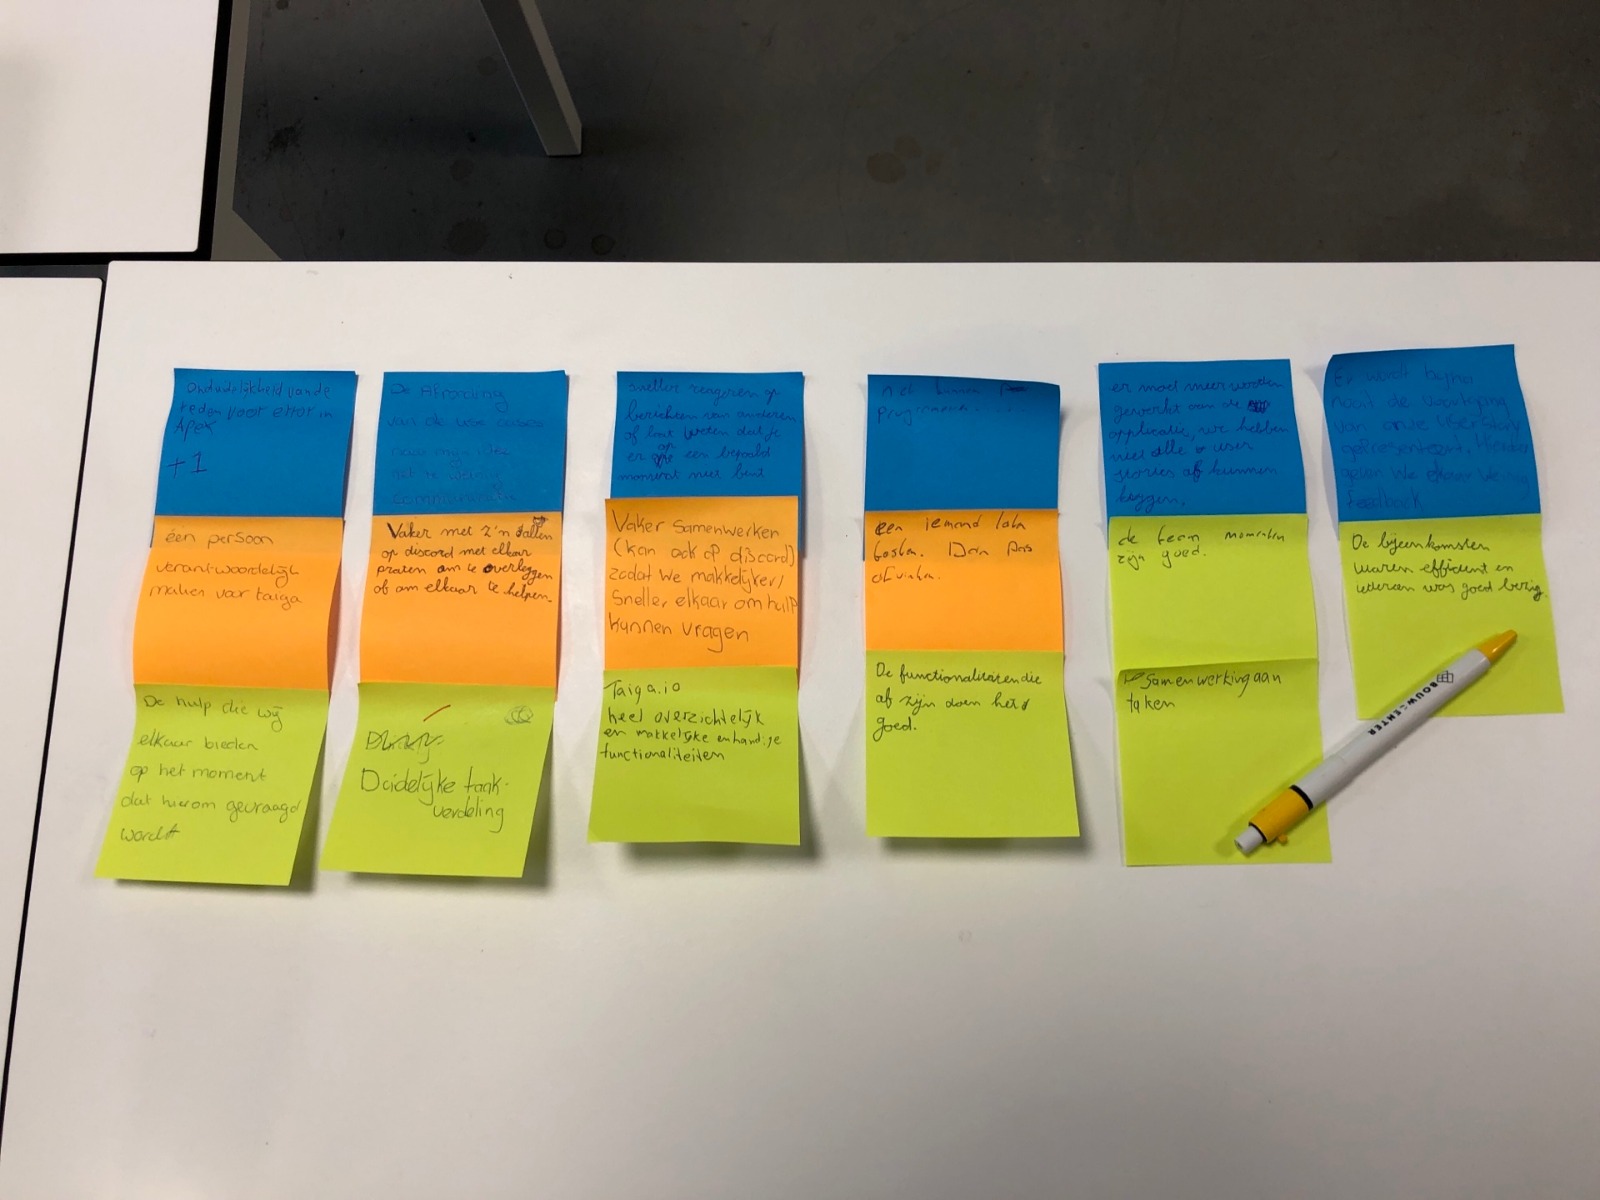 Onduidelijkheid van de
reden voor error in
Apex
+1
één persoon
verantwoordelijk
maken voor taiga
De hulp die wij
elkaar bieden
op het moment
dat hierom gevraagd
wordt
De Afronding
van de use cases
net te weinig
communicatie
Vaker met z'n allen
op discord met elkaar
praten om te overleggen
of om elkaar te helpen.
Duidelijke taak-
verdeling
sneller reageren op
berichten van anderen
of laat weten dat je
er op een bepaald
moment niet bent
Vaker samenwerken
(kan ook op discord)
zodat we makkelijker/
sneller elkaar om hulp
kunnen vragen
Taiga.io
heel overzichtelijk
en makkelijke en handige
functionaliteiten
niet binnen
een iemand laten
testen. Dan pas
afvinken.
De functionaliteiten die
af zijn doen het
goed.
er moet meer worden
gewerkt aan de
applicatie, we hebben
niet alle user
stories af kunnen
krijgen.
de team momenten
zijn goed.
samenwerking aan
taken
Er wordt bijna
nooit de voortgang
van onze userstory
gepresenteerd. Hierdoor
geven we elkaar weinig
feedback
De bijeenkomsten
waren efficient en
iedereen was goed bezig.
BOUWCENTER